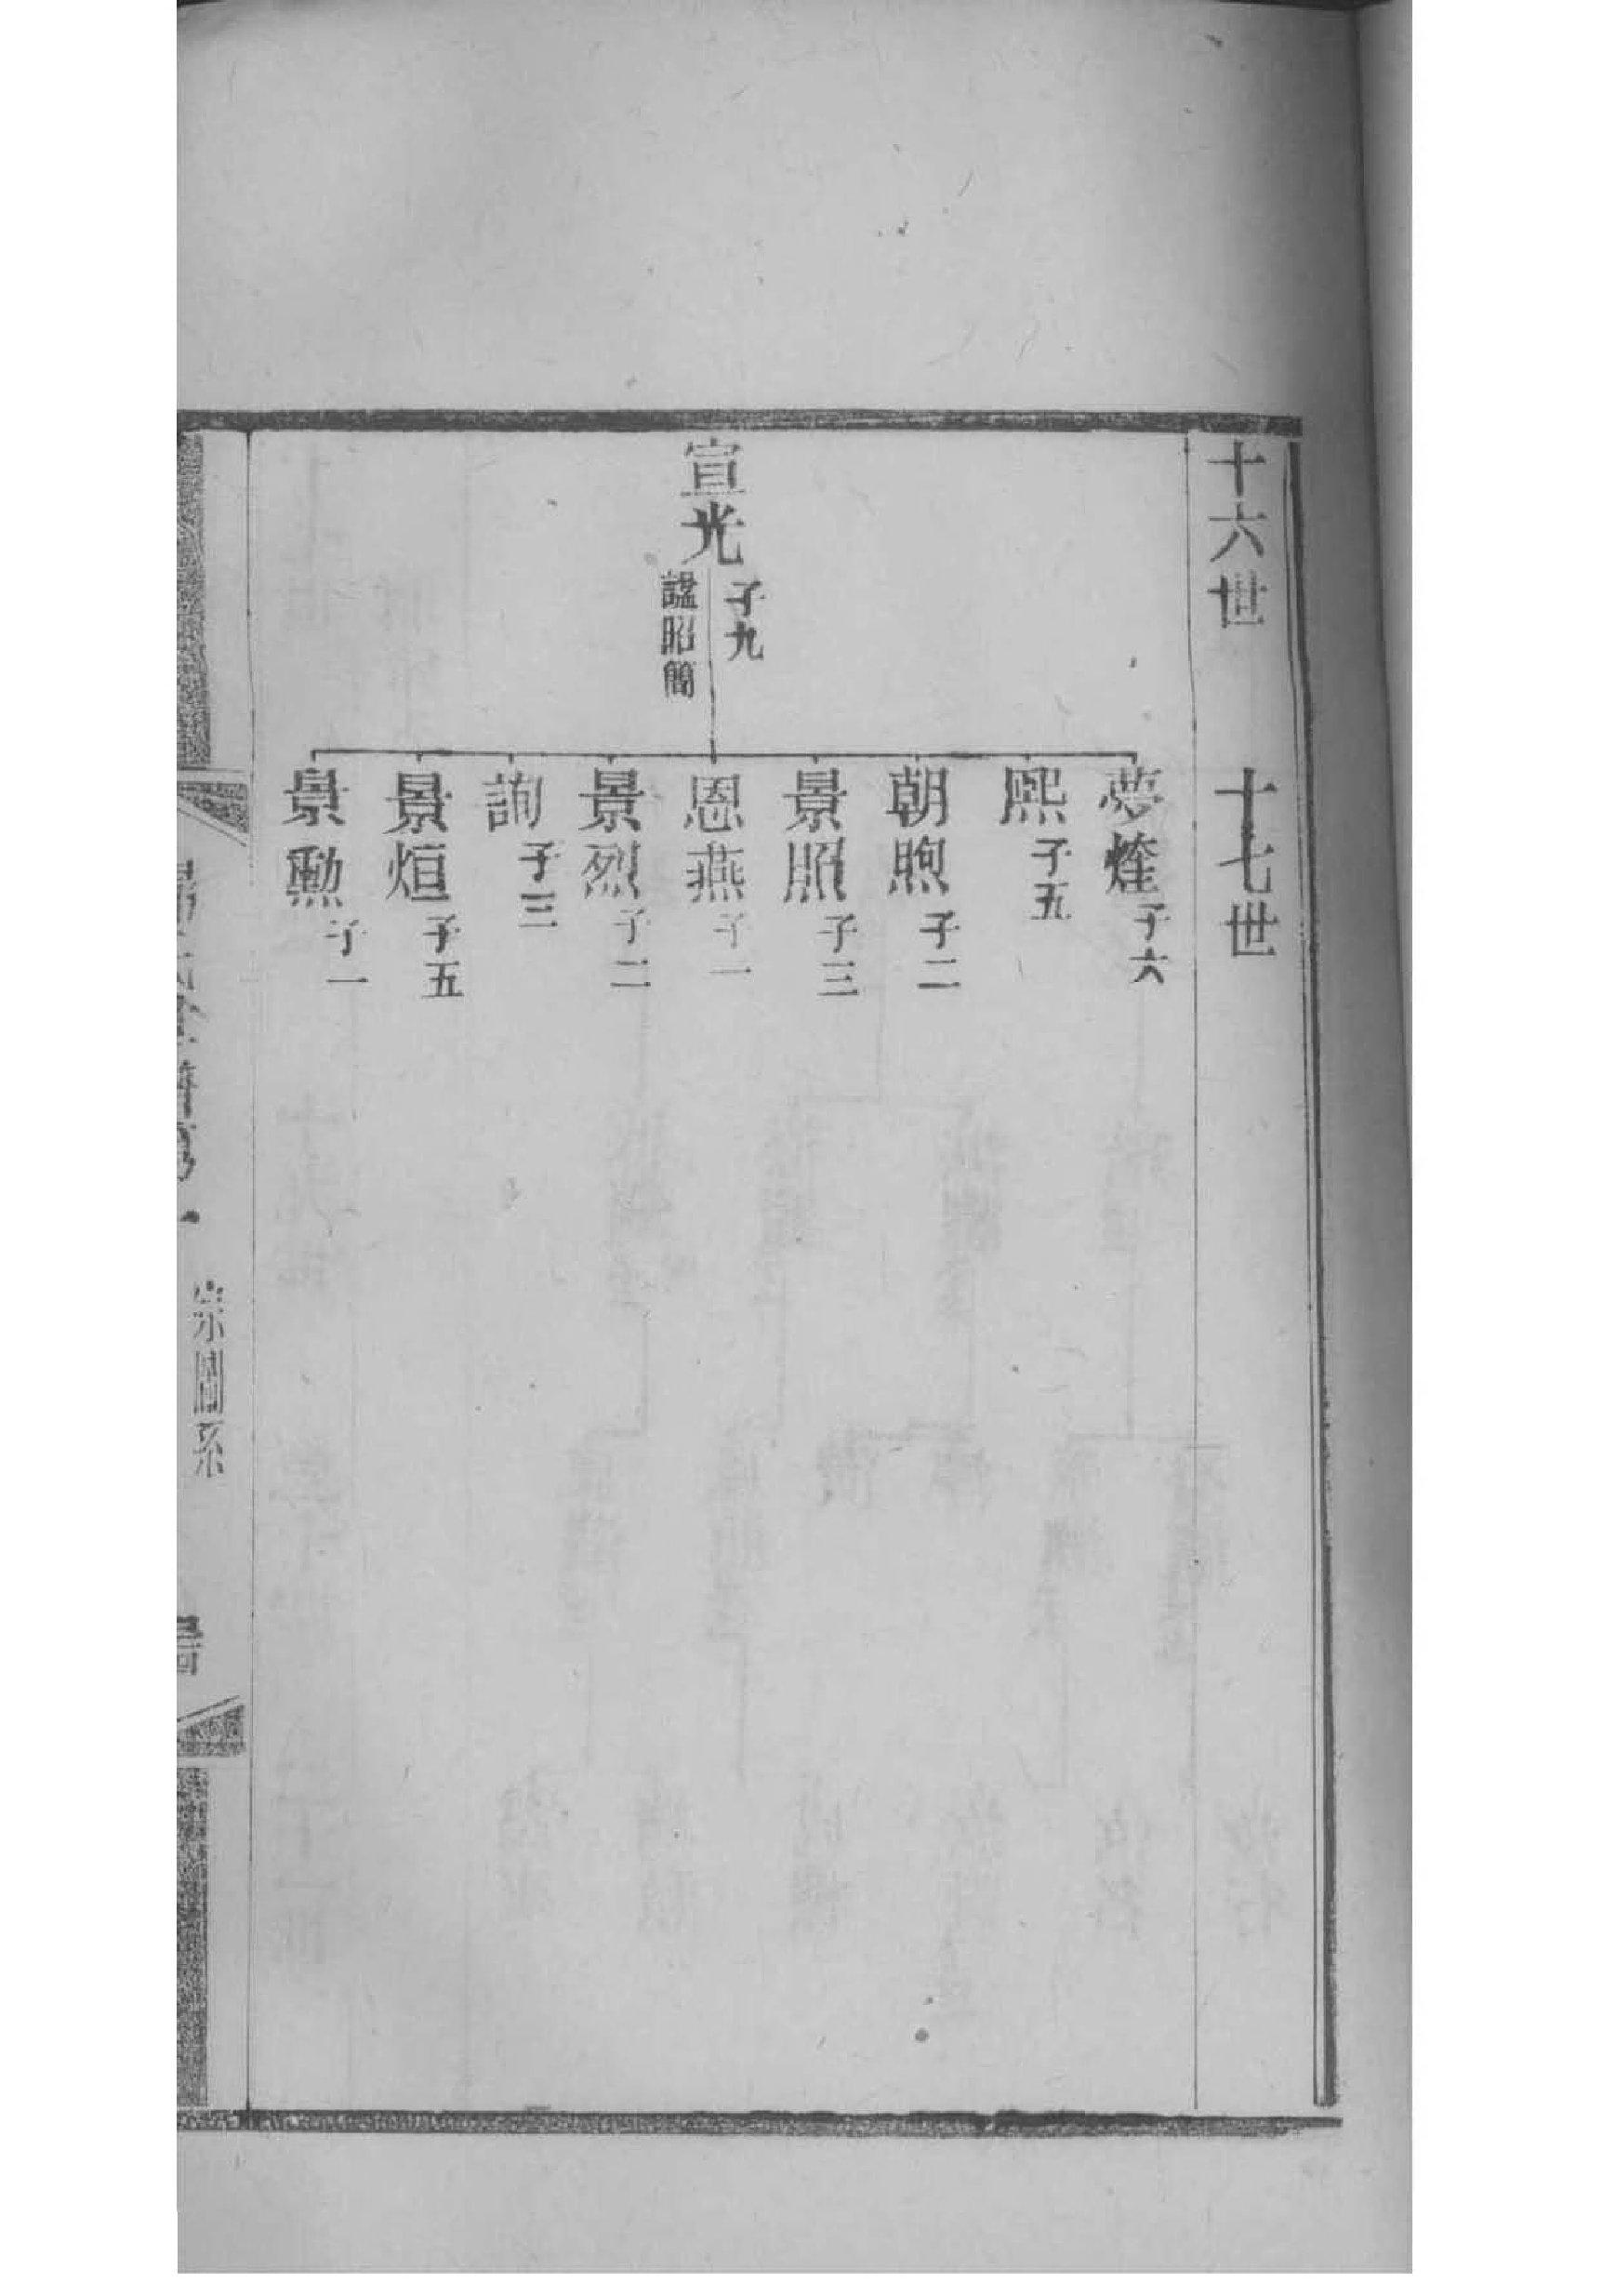 十六世
十七世
宣光
子九
諡昭簡
夢熢子六
熙子五
朝煦子二
景照子三
恩燕子一
景烈子二
詢子三
景烜子五
景勳子一
宗圖系